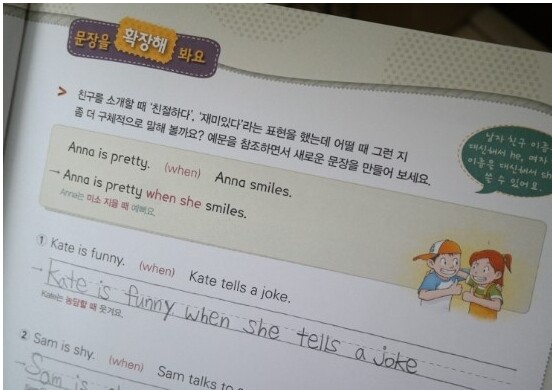 문장을 확장해 봐요
친구를 소개할 때 '친절하다', '재미있다'라는 표현을 했는데 어떨 때 그런 지
좀 더 구체적으로 말해 볼까요? 예문을 참조하면서 새로운 문장을 만들어 보세요.
남자 친구 이름
대신해서 he, 여자
이름을 대신해서 sh
쓸 수 있어요.
Anna is pretty. (when) Anna smiles.
→ Anna is pretty when she smiles.
Anna는 미소 지을 때 예뻐요.
① Kate is funny. (when) Kate tells a joke.
→ Kate is funny when she tells a joke
Kate는 농담할 때 웃겨요.
② Sam is shy. (when) Sam talks to
Sam is